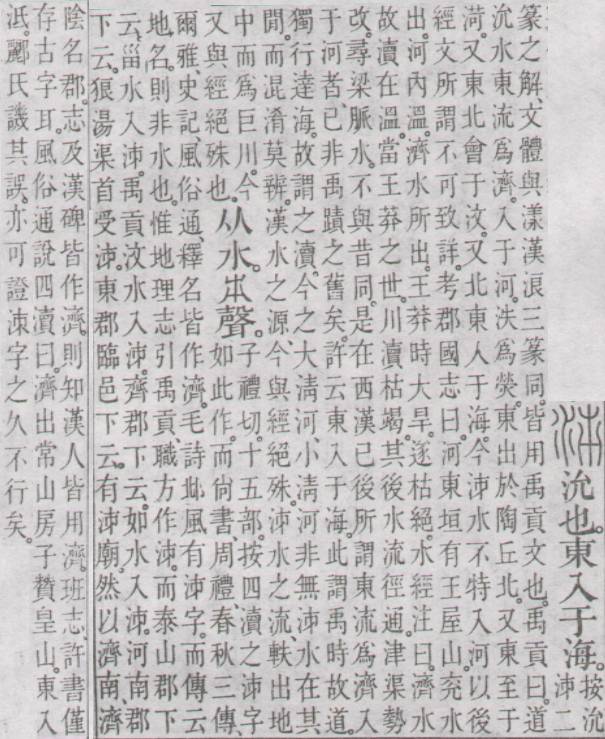 沇也。東入于海。按沇
泲二
篆之解、文體與漾漢浪三篆同。皆用禹貢文也。禹貢曰。道
沇水東流爲濟。入于河。泆爲熒。東出於陶丘北。又東至于
菏。又東北會于汶。又北東人于海。今泲水不特入河以後
經文所謂不可致詳。考郡國志曰。河東垣有王屋山。兖水
出。河內溫。濟水所出。王莽時大旱。遂枯絕。水經注曰。濟水
故瀆在溫。當王莽之世。川瀆枯竭。其後水流徑通。津渠勢
改。尋梁脈水。不與昔同。是在西漢已後所謂東流爲濟。入
于河者。已非禹蹟之舊矣。許云東入于海。此謂禹時故道。
獨行達海。故謂之瀆。今之大淸河、小淸河非無泲水在其
閒。而混淆莫辨。漢水之源。今與經絕殊。泲水之流、軼出地
中而爲巨川。今
又與經絕殊也。
从水。𠂔聲。
子禮切。十五部。按四瀆之泲字
如此作。而尙書、周禮、春秋三傳、
爾雅、史記、風俗通、釋名皆作濟。毛詩邶風有泲字。而傳云
地名。則非水也。惟地理志引禹貢職方作泲。而泰山郡下
云。甾水入泲。禹貢汶水入泲。齊郡下云。如水入泲。河南郡
下云。狼湯渠首受泲。東郡臨邑下云。有泲廟。然以濟南、濟
陰名郡。志及漢碑皆作濟。則知漢人皆用濟。班志、許書僅
存古字耳。風俗通說四瀆曰。濟出常山房子贊皇山。東入
泜。酈氏譏其誤。亦可證泲字之久不行矣。